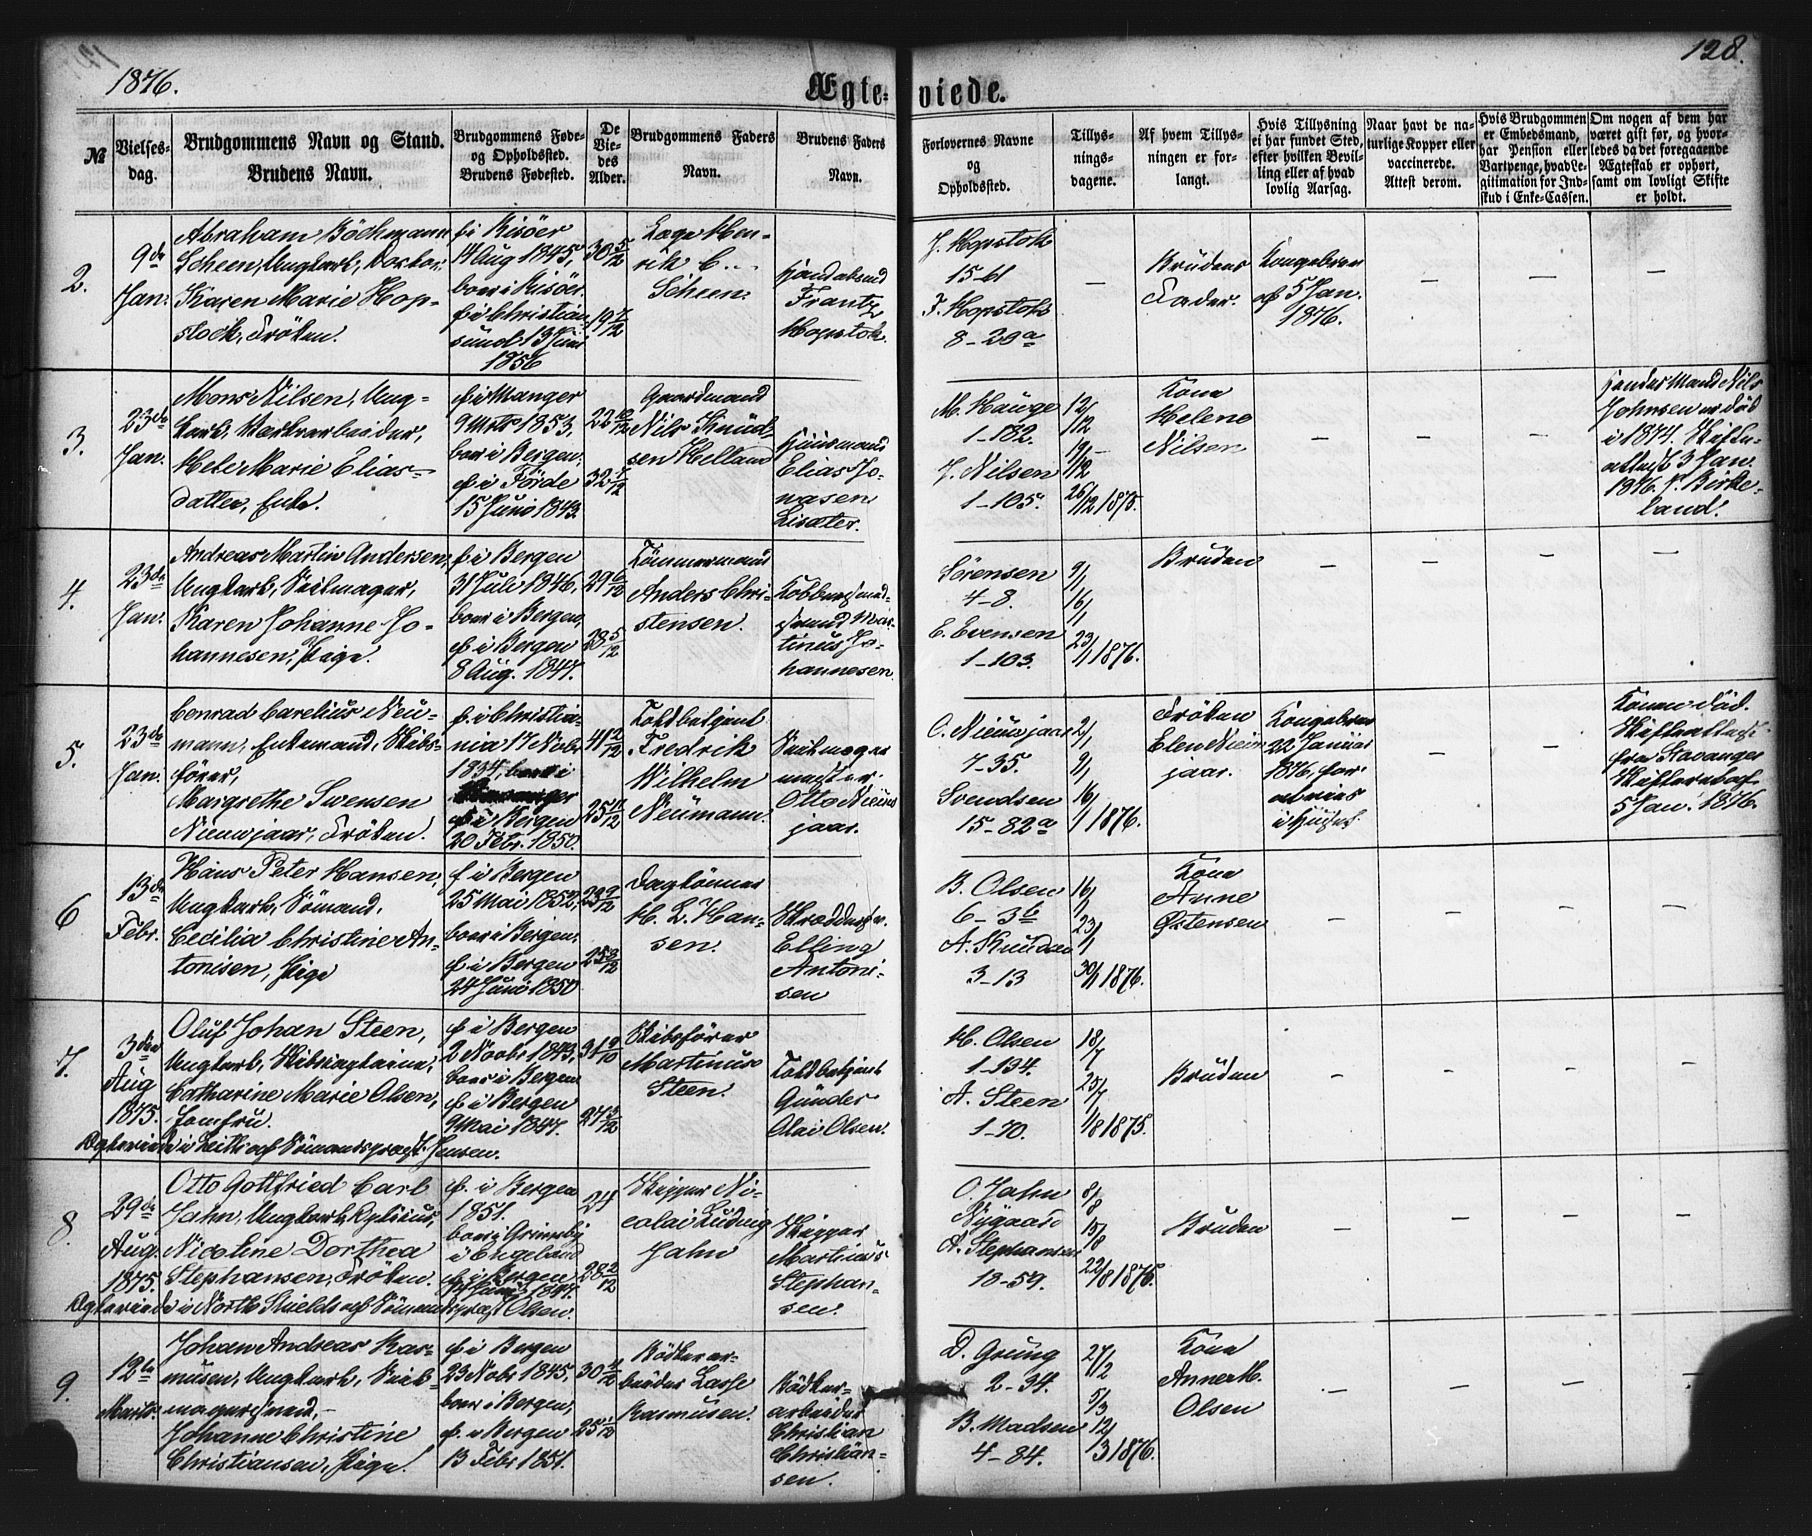 1876.
Ægte-viede.
128.
№
Vielses-
dag.
Brudgommens Navn og Stand.
Brudens Navn.
Brudgommens Føde-
og Opholdssted.
Brudens Fødested.
De
Vie-
des
Alder.
Brudgommens Faders
Navn.
Brudens Faders
Navn.
Forlovernes Navne
og
Opholdssted.
Tillys-
nings-
dagene.
Af hvem Tillys-
ningen er for-
langt.
Hvis Tillysning
ei har fundet Sted,
efter hvilken Bevil-
ling eller af hvad
lovlig Aarsag.
Naar havt de na-
turlige Kopper eller
vaccinerede.
Attest derom.
Hvis Brudgommen
er Embedsmand,
har Pension eller
Vartpenge, hvad Le-
gitimation for Ind-
skud i Enke-Cassen.
Om nogen af dem har
været gift før, og hvor-
ledes da det foregaaende
Ægteskab er ophørt,
samt om lovligt Skifte
er holdt.
2.
9de
Jan.
Abraham Böckmann
Scheen, Ungkarl, Doktor,
Karen Marie Hop-
stock, Fröken.
f. i Risöer
14 Aug 1845,
boer i Risöer.
f. i Christian
sund 13 Juni
1856
30 5/12
19 7/12
Hen-
rik C.
Scheen.
Frantz
Hopstok.
J. Hopstok
15-61
F. Hopstok
8-29a
Brudens
Fader.
Kongebrev
af 5 Jan.
1876.
3.
23de
Jan.
Mons Nilsen, Ung-
karl, Værkarbeider,
Hele Marie Elias-
datter, Enke.
f. i Manger
9 Mts 1853,
boer i Bergen.
f. i Förde
15 Juni 1843.
22 10/12
32 7/12
Gaardmand
Nils Knud-
sen Helland
Huusmand
Elias Jo-
nasen
Lisæter.
M. Hauge
1-182.
J. Nilsen
1-105.
12/12
19/12
26/12 1875.
Kone
Helene
Nilsen
hendes Mand Nils
Johnsen er död
i 1874. Skifte-
attest 3 Jan.
1876 f. Birke-
land.
4.
23de
Jan.
Andreas Martin Andersen,
Ungkarl, Seilmager,
Karen Johanne Jo-
hannesen, Pige.
f. i Bergen
31 Juli 1846.
boer i Bergen,
f. i Bergen
8 Aug. 1847.
29 6/12
28 5/12
Tömmermand
Anders Chri-
stensen.
Kobbersmed-
svend Mar-
tinus Jo-
hannesen.
Sörensen
4-8.
E. Evensen
1-103.
9/1
16/1
23/1 1876.
Bruden
5.
23de
Jan.
Conrad Carelius Neu-
mann, Enkemand, Skibs-
förer,
Margrethe Swensen
Nieuwjaar, Fröken.
f. i Christia-
nia 17 Nobr
1834, boer i
f. i Bergen
20 Febr. 1850.
41 2/12
25 11/12
Toldbetjent
Fredrik
Wilhelm
Neumann.
Seilmager
mester
Otto Nieuw
jaar.
O. Nieuwjaar
7-35.
Svendsen
15-82a
2/1
9/1
16/1 1876.
Fröken
Elen Nieuw
jaar.
Kongebrev
22 Januar
1876, for
at vies
i Huset.
Konen död.
Skifteattest
fra Stavanger
Skifteretsaf
5 Jan. 1876.
6
13de
Febr.
Hans Peter Hansen,
Ungkarl, Sömand.
Cecilia Christine An-
tonisen, Pige
f. i Bergen
25 Mai 1852,
boer i Bergen.
f. i Bergen
24 Juni 1850
23 9/12
25 8/12
Daglönner
H. L. Han-
sen.
Elling
Antoni-
sen
B. Olsen
6-3b
A. Knudsen
3-13
16/1
23/1
30/1 1876.
Kone
Anne
Østensen
7.
3die
Aug
1875.
Oluf Johan Steen,
Ungkarl, Skibskaptaine,
Catharine Marie Olsen,
Jomfru.
Ægteviede i Leith af Sömandspræst Hansen.
f. i Bergen
2 Novbr 1843,
boer i Bergen
f. i Bergen
9 Mai 1847.
27 3/12
Skibsförer
Martinus
Steen.
Toldbetjent
Gunder
Olai Olsen.
H. Olsen
1-134.
A. Steen
1-70.
18/7
25/7
1/8 1875.
Bruden
8.
29de
Aug.
1875.
Otto Gottfried Carl
Jahn, Ungkarl,
Nicoline Dorthea
Stephansen, Fröken.
Ægteviede i North Shields af Sömandspræst Olsen.
f. i Bergen
1851.
boer i Grimsby
i Engeland
f. i Bergen
1847.
24
28 2/12
Skipper Ni-
colai Ludvig
Jahn
Skipper
Martinus
Stephan-
sen.
O. Jahn
Nygaard
A. Stephansen
18-59.
8/8
15/8
22/8 1875.
Bruden
9.
12te
Marts.
Johan Andreas Ras-
musen, Ungkarl, Seil-
magersvend,
Johanne Christine
Christiansen, Pige.
f. i Bergen
23 Nobr 1845,
boer i Bergen,
f. i Bergen
13 Febr 1851.
30 4/12
25 1/12
Bödkerar-
beider Lasse
Rasmusen.
Bödker-
arbeider
Christian
Christian-
sen.
D. Grung
2-34.
B. Madsen
4-84.
27/2
5/3
12/3 1876.
Kone
Anne M.
Olsen